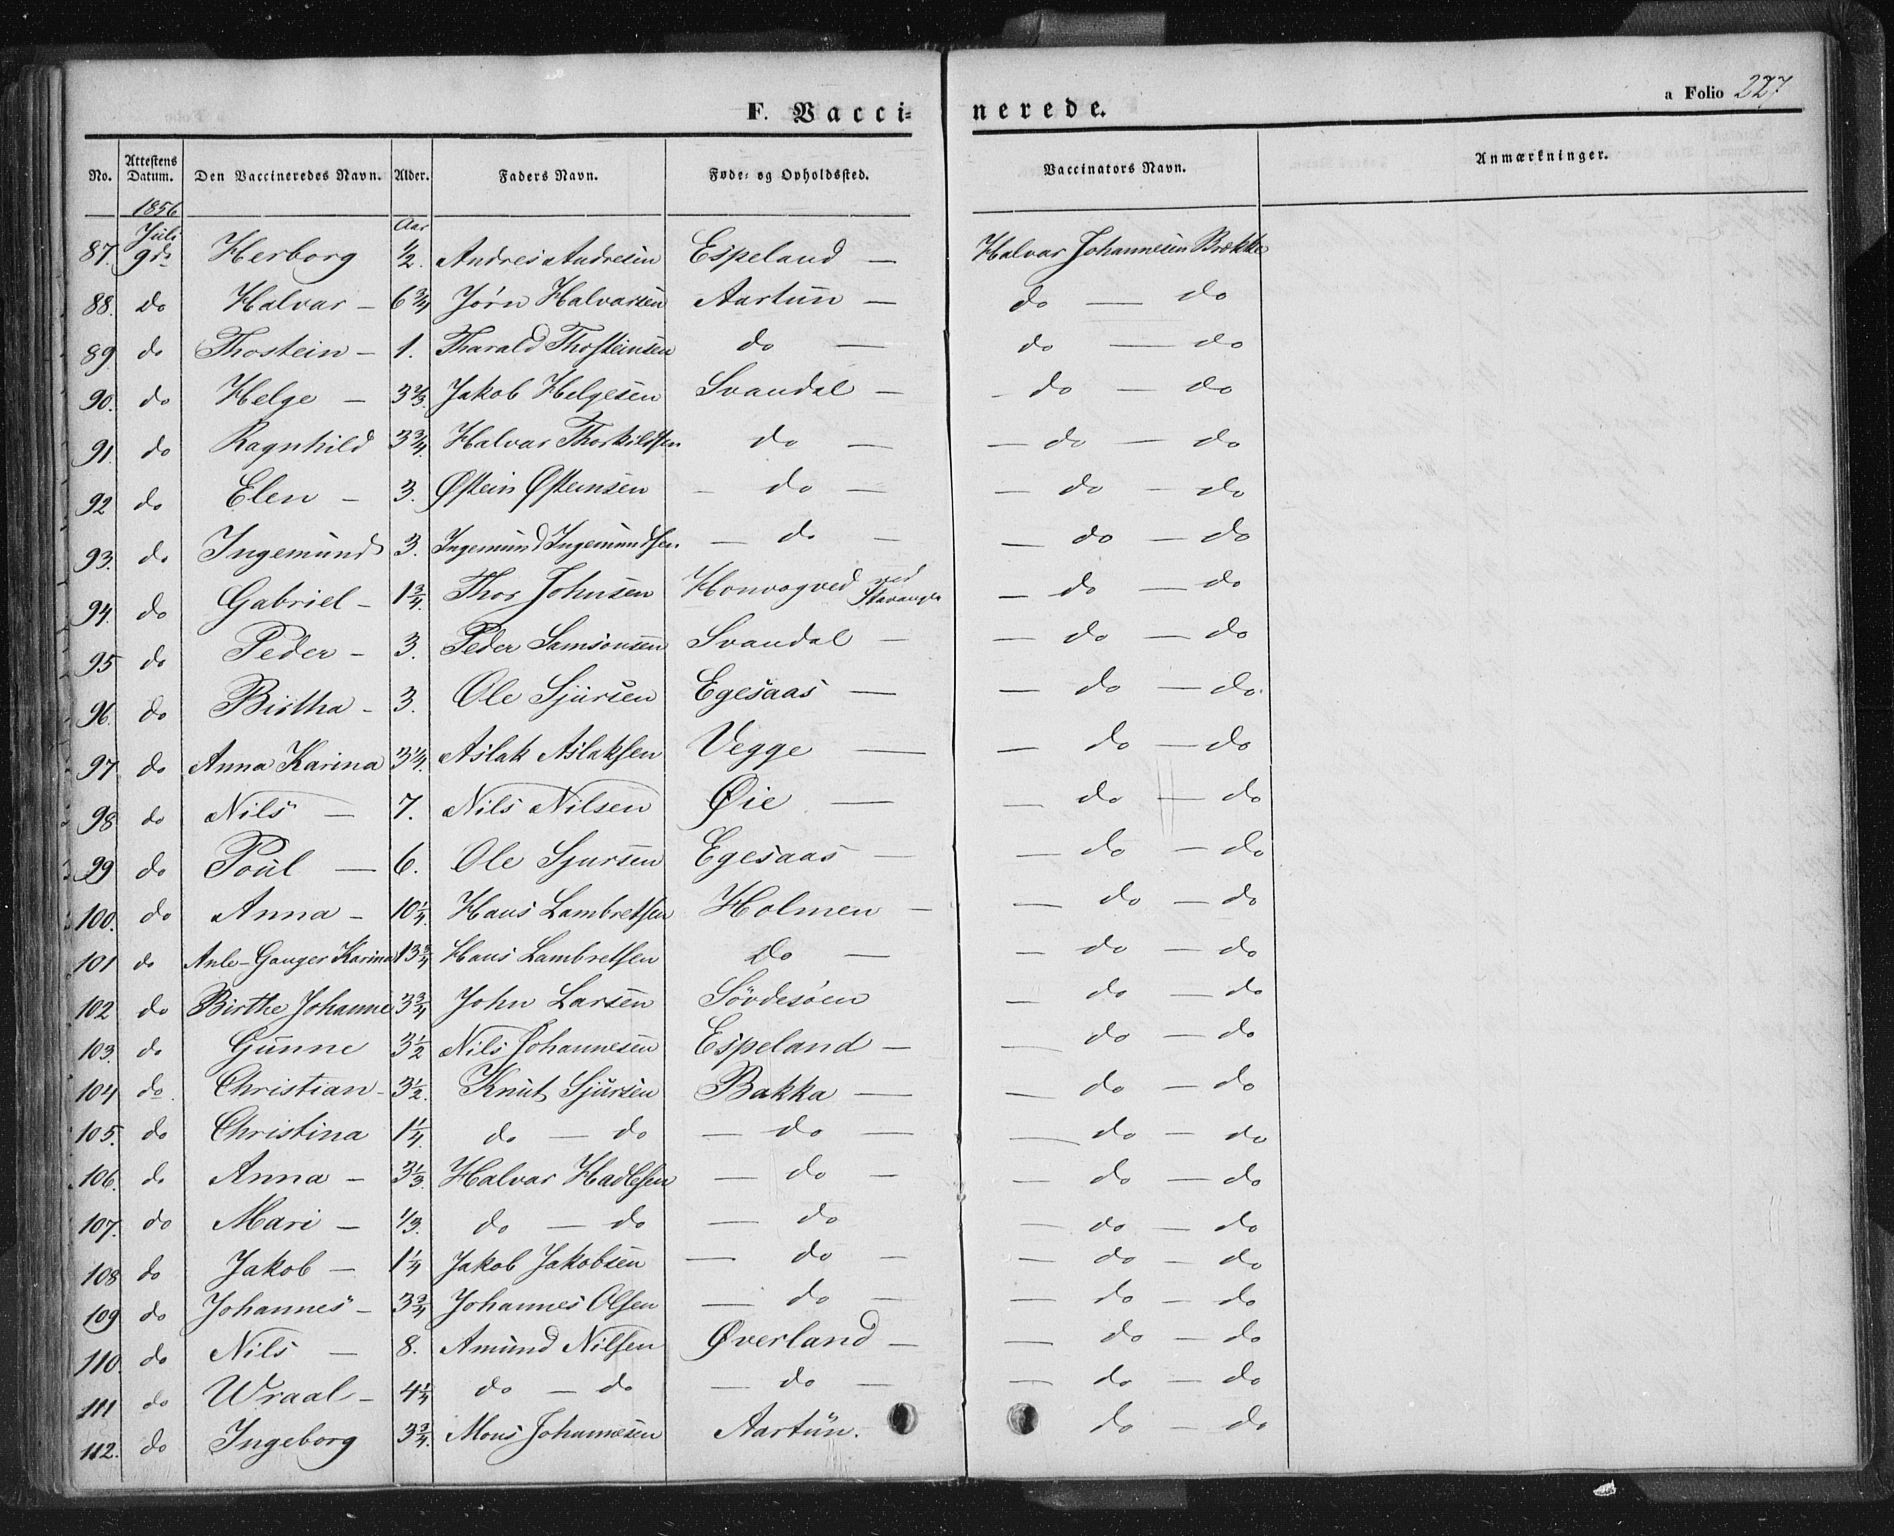 a Folio 227
F. Vacci- nerede.
No. Attestens Datum. Den Vaccineredes Navn. Alder. Faders Navn. Føde- og Opholdssted. Vaccinators Navn. Anmærkninger.
1856
Juli Aar
87. 9de Herborg 1/2. Andres Andresen Espeland — Halvar Johannesen Brække
88. do Halvar — 6 3/4 Jørn Halvarsen Aartun — do — do
89 do Thostein — 1. Tharald Thosteinsen do — do — do
90. do Helge — 3 2/3. Jakob Helgesen Svandal — — do — do
91. do Ragnhild 3 3/4. Halvar Thorkildsen do — — do — do
92 do Elen — 3. Østein Østeinsen — do — — do — do
93. do Ingemund 3. Ingemund Ingemundsen — do — — do — do
94. do Gabriel — 1 3/4. Thor Johnsen ved Stavanger — do — do
95 do Peder — 3. Peder Samsonsen Svandal — — do — do
96. do Birtha — 3. Ole Sjursen Egesaas — — do — do.
97 do Anna Karina 3 1/4. Aslak Aslaksen Vegge — — do — do
98 do Nils — 7. Nils Nilsen Øie — — do — do
99 do Poul — 6. Ole Sjursen Egesaas — — do — do
100. do Anna — 10 1/4. Hans Lambretsen Holmen — — do — do
101 do Karina 13 3/4 Hans Lambretsen do — — do — do
102 do Birthe Johanne 3 3/4 John Larsen Sövdesöen — do — do
103. do Gunne 3 1/2 Nils Johannesen Espeland — — do — do
104 do. Christian — 3 1/2. Knut Sjursen Bakka — — do — do
105. do Christina 1 1/4. do — do — do — — do — do
106. do Anna — 3 1/3. Halvar Hadlesen — do — — do — do
107. do Mari — 1/3. do — do — do — do — do
108 do Jakob — 1 1/4 Jakob Jakobsen — do — — do — do
109 do Johannes — 3 3/4 Johannes Olsen — do — — do — do
110. do Nils — 8. Amund Nilsen Øverland — — do — do
111 do Wraal — 4 1/4 do — do — do — — do — do
112. do Ingeborg 3 3/4. Mons Johannesen Aartun. do — do